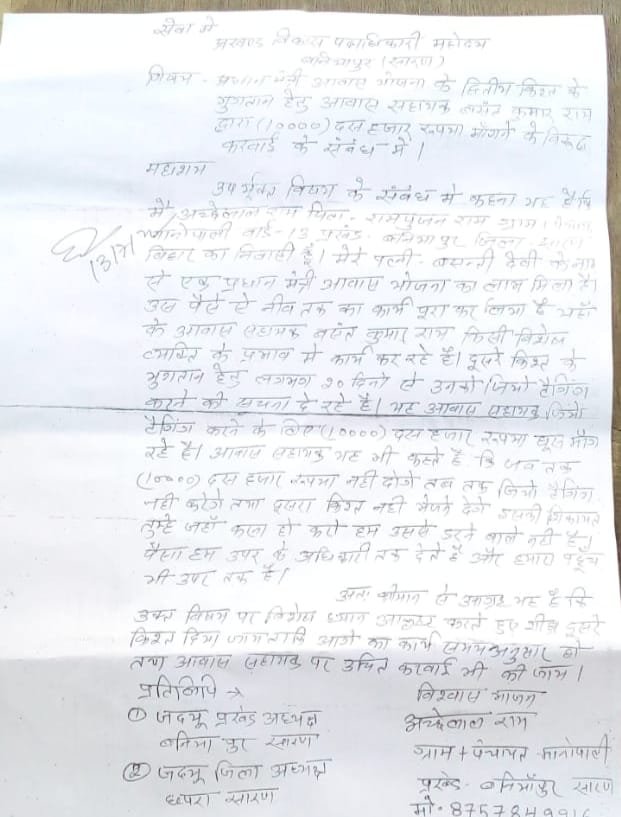 सेवा में
प्रखण्ड विकास पदाधिकारी महोदय
बनियापुर (सारण)
विषय - प्रधान मंत्री आवास योजना के द्वितीय किश्त के
भुगतान हेतु आवास सहायक बसंत कुमार राम
द्वारा (10000) दस हजार रूपया माँगने के विरूद्ध
करवाई के संबंध में।
महाशय
उपर्युक्त विषय के संबंध मे कहना यह है कि
मैं अच्छेलाल राम पिता - रामपुजन राम ग्राम
मानोपाली वार्ड - 13 प्रखंड - बनियापुर जिला - सारण
बिहार का निवासी हूँ। मेरे पत्नी - बसन्ती देवी के नाम
से एक प्रधान मंत्री आवास योजना का लाभ मिला है।
उस पैसे से नीव तक का कार्य पुरा कर लिया है यहाँ
के आवास सहायक बसंत कुमार राम किसी विशेष
व्यक्ति के प्रभाव मे कार्य कर रहे है। दूसरे किश्त के
भुगतान हेतु लगभग २० दिनो से उनको जियो टैगिंग
करने की सूचना दे रहे है। यह आवास सहायक जियो
टैगिंग करने के लिए (10000) दस हजार रूपया घूस माँग
रहे है। आवास सहायक यह भी कहते है कि जब तक
(10000) दस हजार रूपया नही दोगे तब तक जियो टैगिंग
नही करेगे तथा दूसरा किश्त नही भेजने देगे इसकी शिकायत
तुम्हे जहाँ करना हो करो हम उससे डरने वाले नही है।
पैसा हम उपर के अधिकारी तक देते है और हमारा पहूँच
भी उपर तक है।
अतः श्रीमान से आग्रह यह है कि
उक्त विषय पर विशेष ध्यान आकृष्ट करते हुए शीघ्र दूसरे
किश्त दिया जाय ताकि आगे का कार्य समय अनुसार हो
तथा आवास सहायक पर उचित करवाई भी की जाय।
प्रतिलिपि →
① जदयू प्रखंड अध्यक्ष
बनिया पुर सारण
② जदयू जिला अध्यक्ष
छपरा सारण
विश्वास भाजन
अच्छेलाल राम
ग्राम + पंचायत - मानोपाली
प्रखंड - बनियाँपुर सारण
मो -